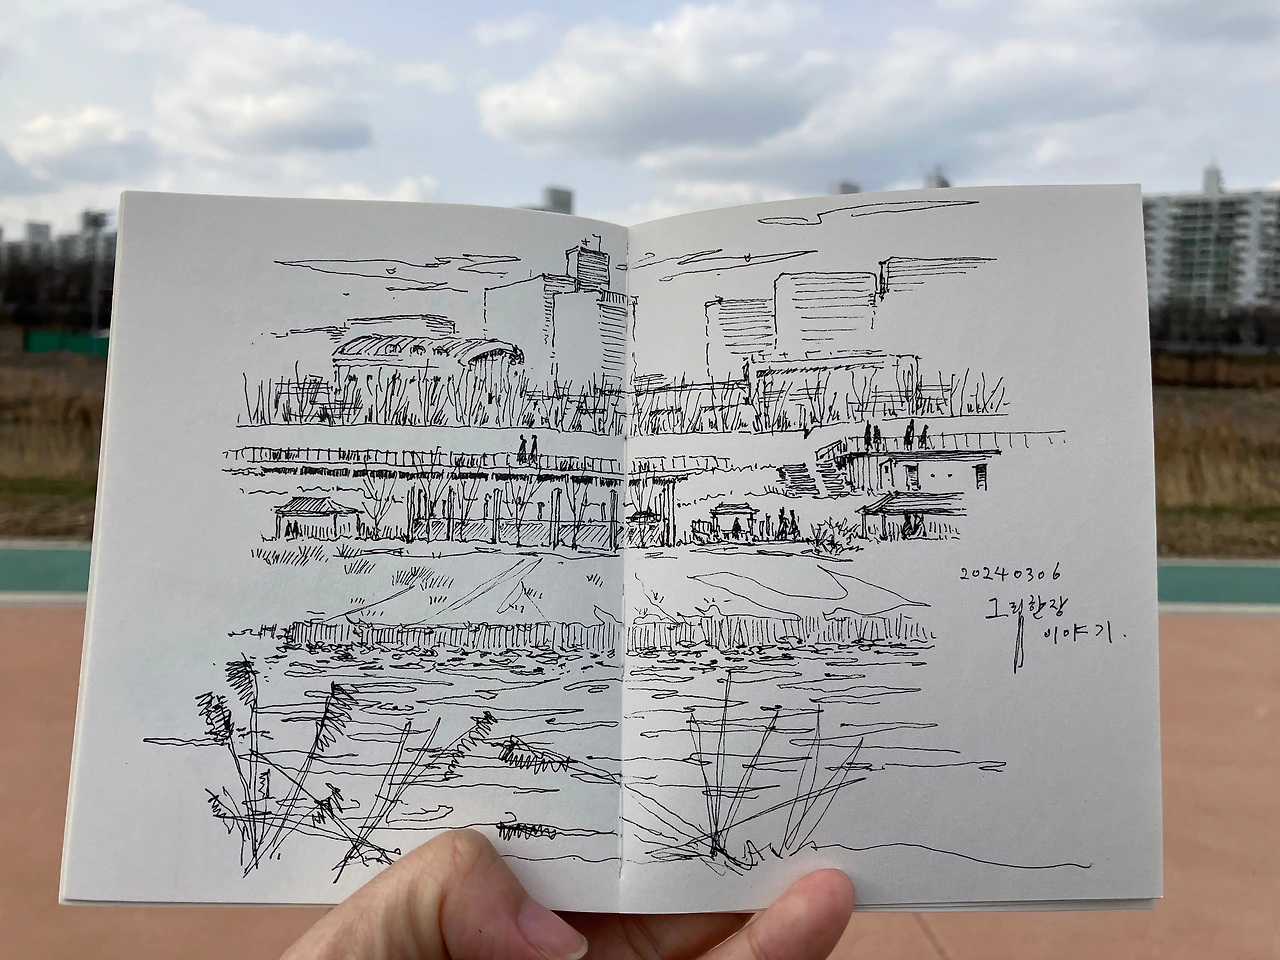 20240306
그림한장
이야기.